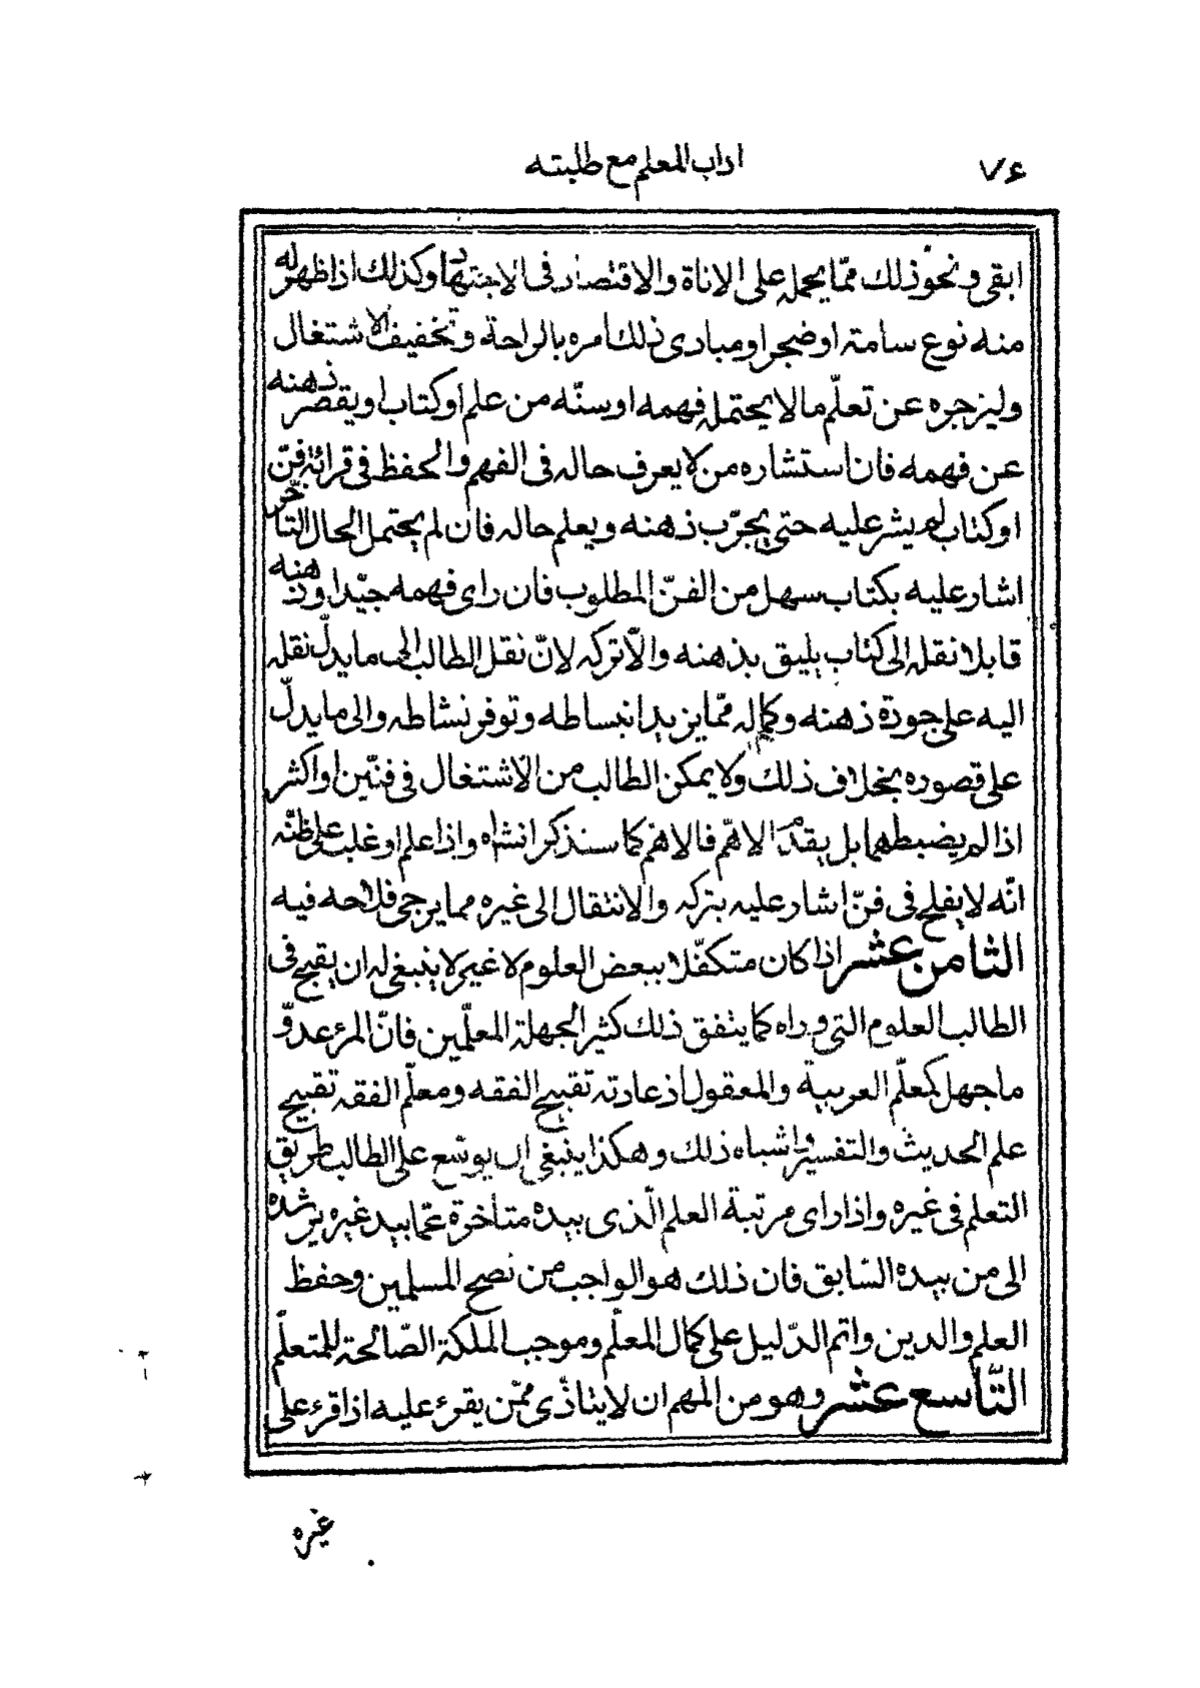 ٧۶
اداب المعلم مع طلبته
ابقى ونحو ذلك ممّا يحمله على الاناة والاقتصار فى الاجتهاد وكذلك اذا ظهر له
منه نوع سامة او ضجر او مبادى ذلك امره بالراحة وتخفيف الاشتغال
وليزجره عن تعلّم ما لا يحتمله فهمه او سنّه من علم او كتاب او يقصر ذهنه
عن فهمه فان استشاره من لا يعرف حاله فى الفهم والحفظ فى قرائة فنّ
او كتاب لم يشر عليه حتى يجرّب ذهنه ويعلم حاله فان لم يحتمل الحال التاخّر
اشار عليه بكتاب سهل من الفنّ المطلوب فان راى فهمه جيّدا وذهنه
قابلا نقله الى كتاب يليق بذهنه والّا تركه لانّ نقل الطالب الى ما يدلّ نقله
اليه على جودة ذهنه وكماله ممّا يزيد انبساطه وتوفر نشاطه والى ما يدلّ
على قصوره بخلاف ذلك ولا يمكن الطالب من الاشتغال فى فنّين او اكثر
اذا لم يضبطهما بل يقدّم الاهمّ فالاهمّ كما سنذكر انشاه واذا علم او غلب على ظنّه
انّه لا يفلح فى فنّ اشار عليه بتركه والانتقال الى غيره مما يرجى فلاحه فيه
الثامن عشر اذا كان متكفّلا ببعض العلوم لا غير لا ينبغى له ان يقبح فى
الطالب العلوم التى وراه كما يتفق ذلك كثير الجهلة المعلّمين فانّ المرء عدوّ
ما جهل كمعلّم العربية والمعقول اذ عادته تقبيح الفقه ومعلّم الفقه تقبيح
علم الحديث والتفسير واشباه ذلك وهكذا ينبغى ان يوسّع على الطالب طريق
التعلم فى غيره واذا راى مرتبة العلم الّذى بيده متاخرة عمّا بيد غيره يرشده
الى من بيده السّابق فان ذلك هو الواجب من نصح المسلمين وحفظ
العلم والدين واتم الدّليل على كمال المعلّم وموجب الملكة الصّالحة للمتعلّم
التّاسع عشر وهو من المهم ان لا يتاذّى ممّن يقرء عليه اذا قرء على
غيره